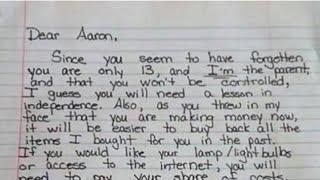 Dear Aaron,
Since you seem to have forgotten
you are only 13, and I'm the parent,
and that you won't be controlled,
I guess you will need a lesson in
independence. Also, as you threw in my
face that you are making money now,
it will be easier to buy back all the
items I bought for you in the past.
If you would like your lamp/lightbulbs
or access to the internet, you will
need to pay your share of costs